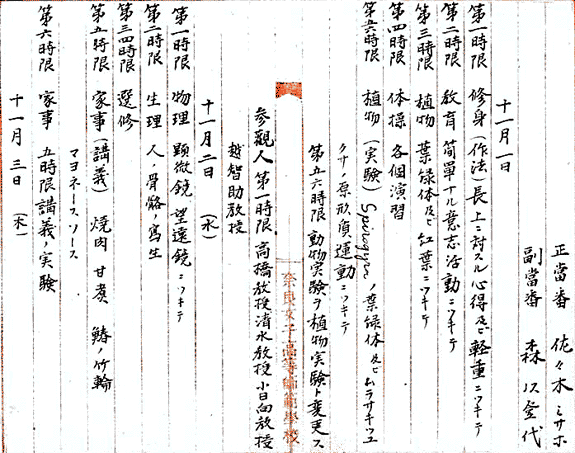 正當番 佐々木ミサホ
副當番 森 代
十一月一日
第一時限 修身(作法)長上ニ対スル心得及ビ軽重ニツキテ
第二時限 教育 簡單ナル意志活動ニツキテ
第三時限 植物 葉緑体及ビ紅葉ニツキテ
第四時限 体操 各個演習
第五六時限 植物(実験)Spirogyraノ葉緑体及ビムラサキツユ
クサノ原形質運動ニツキテ
第五六時限 動物実験ヲ植物実験ト変更ス
参観人 第一時限 高橋教授 清水教授 小日向教授
越智助教授
奈良女子高等師範學校
十一月二日 (水)
第一時限 物理 顕微鏡 望遠鏡ニツキテ
第二時限 生理 人ノ骨骼ノ寫生
第三四時限 選修
第五時限 家事(講義) 焼肉 甘煮 鰆ノ竹輪
マヨネースソース
第六時限 家事 五時限講義ノ実験
十一月三日 (木)